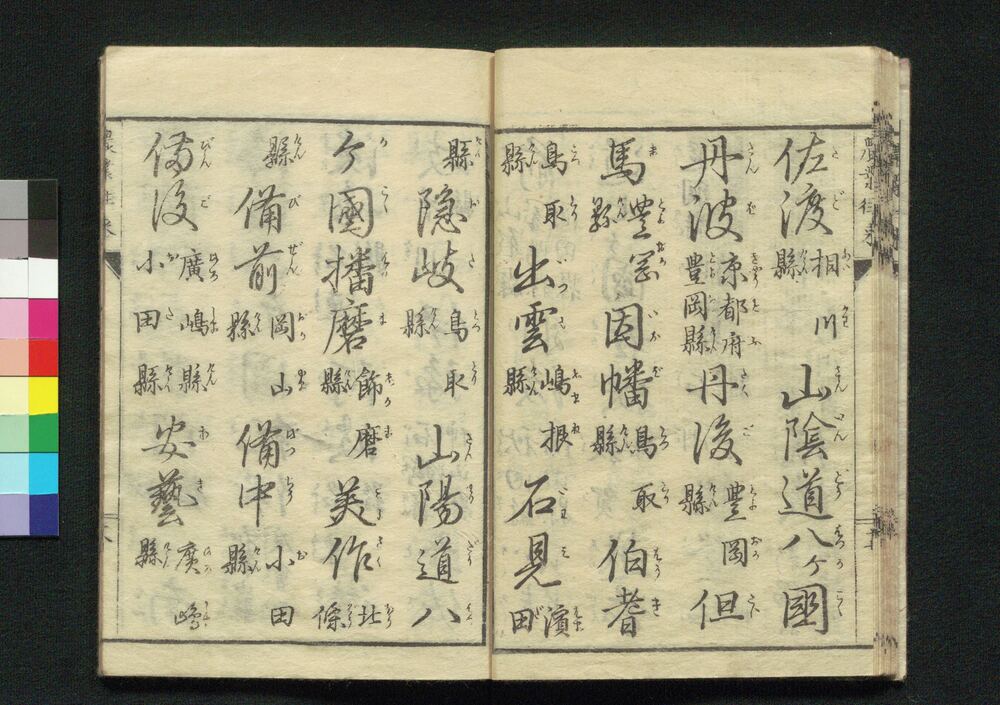 佐渡 相川縣 山陰道八ケ國
丹波 京都府 豊岡縣 丹後 豊岡縣 但
馬 豊岡縣 因幡 鳥取縣 伯耆
鳥取縣 出雲 嶋根縣 石見 濱田
縣 隠岐 鳥取縣 山陽道八
ケ國 播磨 飾磨縣 美作 北條
縣 備前 岡山縣 備中 小田縣
備後 廣嶋縣 小田縣 安藝 廣嶋縣